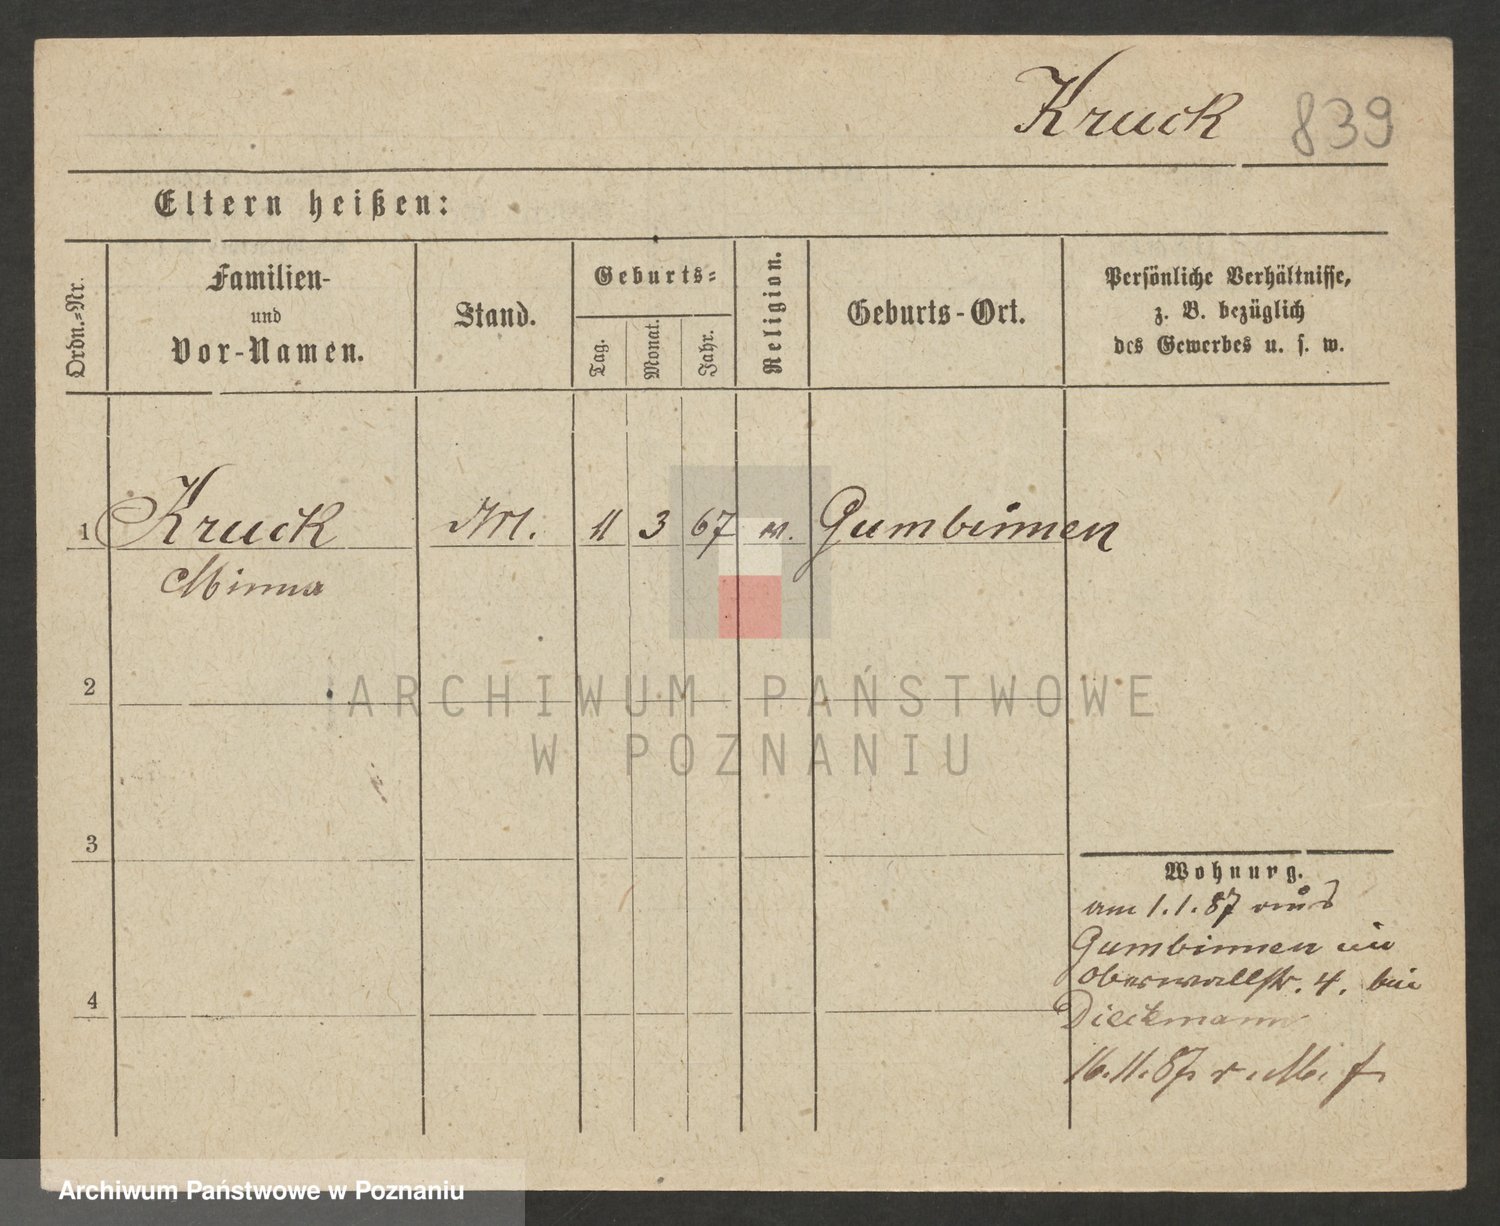 Kruck 839
Eltern heißen:
Ordn.-Nr.
Familien-
und
Vor-Namen.
Stand.
Geburts-
Tag.
Monat.
Jahr.
Religion.
Geburts-Ort.
Persönliche Verhältnisse,
z. B. bezüglich
des Gewerbes u. s. w.
1 Kruck 11 3 67 Gumbinnen
Minna
2
ARCHIWUM PAŃSTWOWE
W POZNANIU
3
Wohnung.
am 1.1.87 aus
Gumbinnen in
Oberwallstr. 4. bei
Dieckmann
4
16.11.87
Archiwum Państwowe w Poznaniu